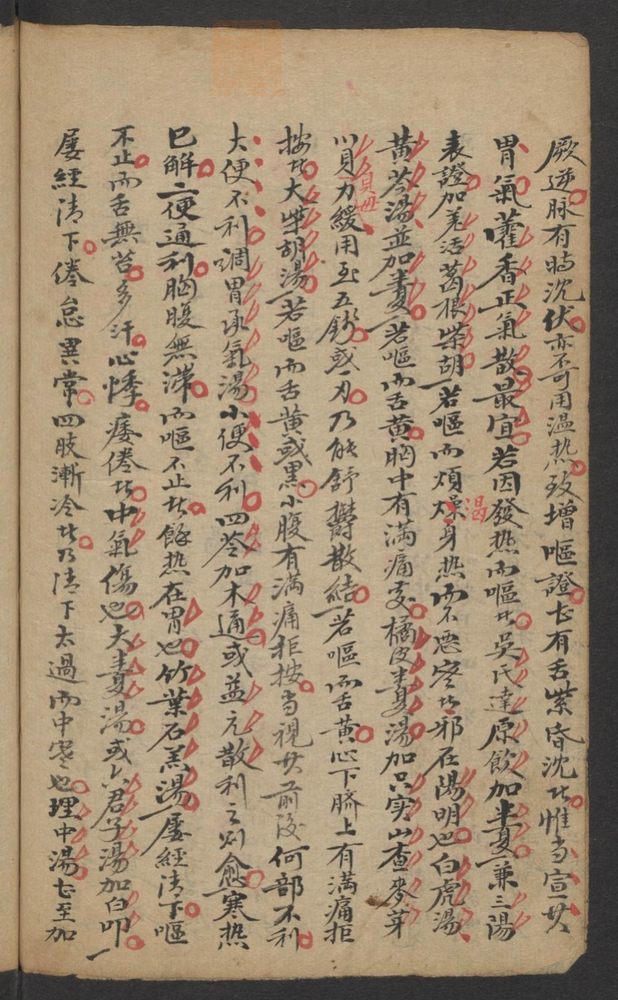 厥逆脉有時沉伏亦不可用温热致增嘔證甚有舌紫昏沉者惟当宣其
胃氣藿香正氣散最宜若因發热而嘔者吳氏達原飲加半夏兼三陽
表證加羌活葛根柴胡若嘔而煩燥渴身热而不惡寒者邪在陽明也白虎湯
黄芩湯並加半夏若嘔而舌黄胸中有满痛處橘皮半夏湯加只实山查麥芽
川貝貝母力緩用至五錢或一刃乃能舒鬱散結若嘔而舌黄心下臍上有满痛拒
按者大柴胡湯若嘔而舌黄或黑小腹有满痛拒按当視其前後何部不利
大便不利調胃承氣湯小便不利四苓加木通或益元散利之则愈寒热
已解二便通利胸腹無滞而嘔不止者餘热在胃也竹葉石羔湯屡經清下嘔
不止而舌無苔多汗心悸痿倦者中氣傷也大半夏湯或六君子湯加白叩一
屡經清下倦怠異常四肢漸冷者乃清下太過而中寒也理中湯甚至加